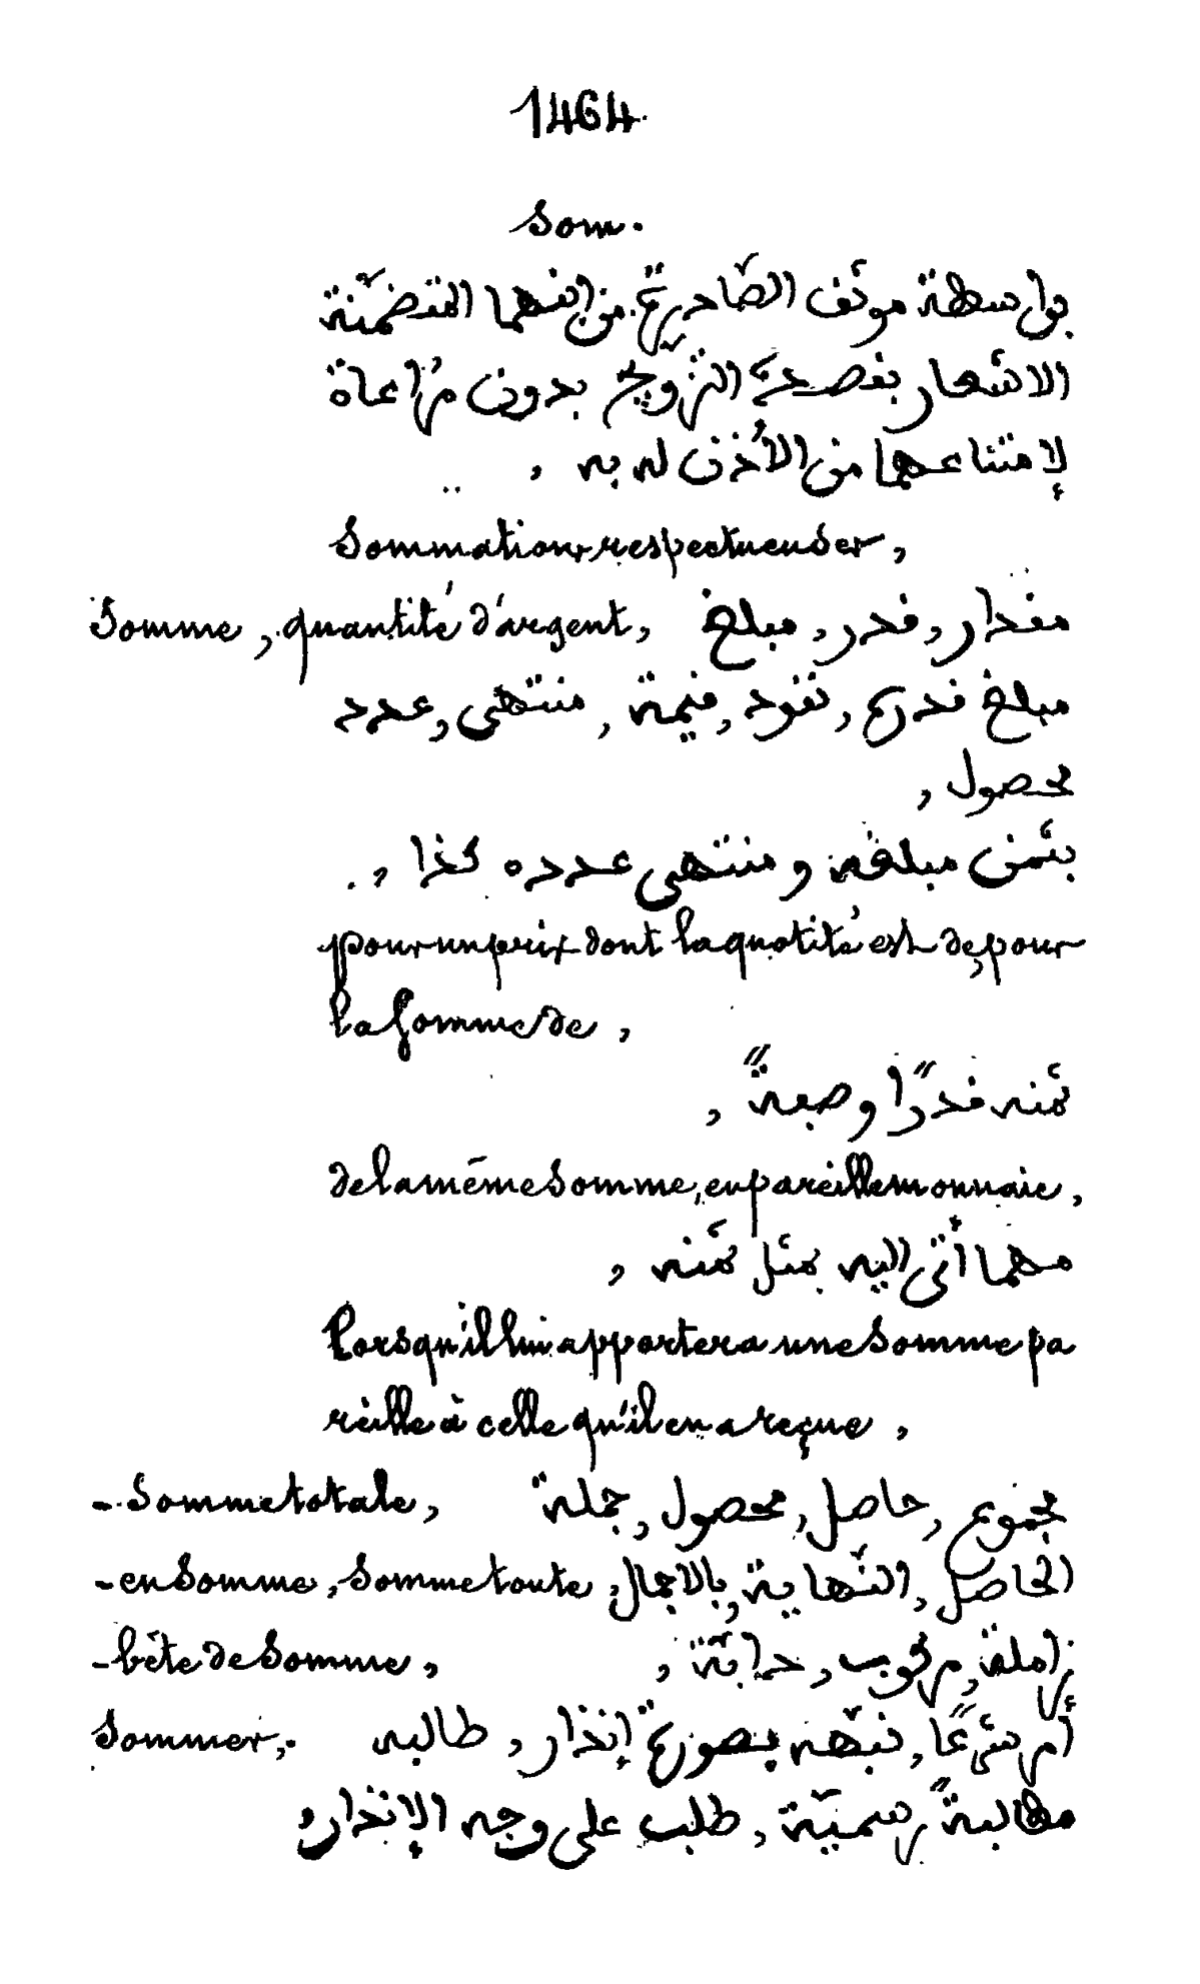 1464.
Som.
بواسطة موثف الصّادرة من ابنهما المتضمّنة
الاشعار بقصده التزّوج بدون مُراعاة
لإمتناعهما من الأذن له به ,
Sommations respectueuses,
Somme, quantité d'argent, مقدار, قدر, مبلغ
مبلغ قدره, نقود, قيمة, منتهى, عدد
محصول ,
بثمن مبلغه و منتهى عدده كذا ,
pour un prix dont la quotité est de, pour
la somme de ,
ثمنه قدرًا وصفةً ,
de la même somme, en pareille monnaie,
مهما أتى اليه بمثل ثمنه ,
lorsqu'il lui apportera une somme pa
reille à celle qu'il en a reçue ,
- Somme totale, مجموع, حاصل, محصول, جملة
- en somme, somme toute, الحاصل, النّهاية, بالاجمال
- bête de somme, زاملة, مركوب, دابّة ,
Sommer, أمر شرعًا, نبّهه بصورة إنذار, طالبه
مطالبةً رسميّة, طلب على وجه الإنذار,